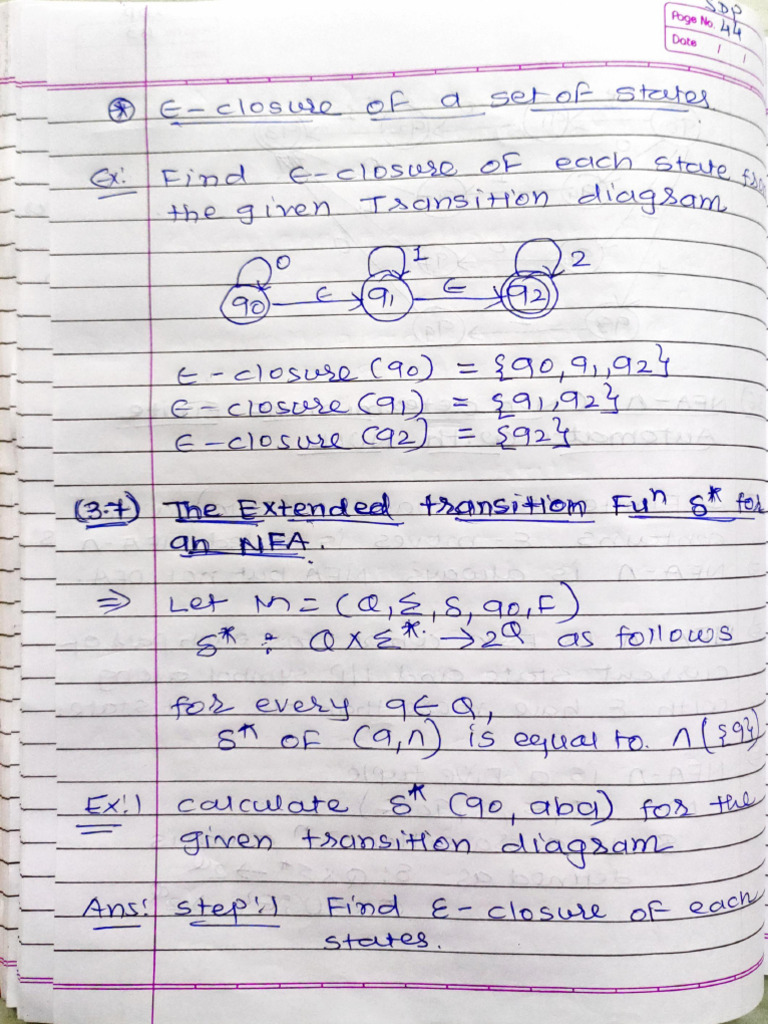 SDP
Page No. 44
Date / /
⊛ ∈-closure of a set of states.
Ex: Find ∈-closure of each state from
the given Transition diagram
0 1 2
q0 ∈ q1 ∈ q2
∈-closure (q0) = {q0, q1, q2}
∈-closure (q1) = {q1, q2}
∈-closure (q2) = {q2}
(3.7) The Extended transition Fuⁿ δ* for
an NFA.
⇒ Let M = (Q, Σ, δ, q0, F)
δ* : Q × Σ* → 2^Q as follows
for every q ∈ Q,
δ* of (q, ∧) is equal to. ∧({q})
Ex:1 calculate δ* (q0, aba) for the
given transition diagram
Ans: step:1 Find ε-closure of each
states.